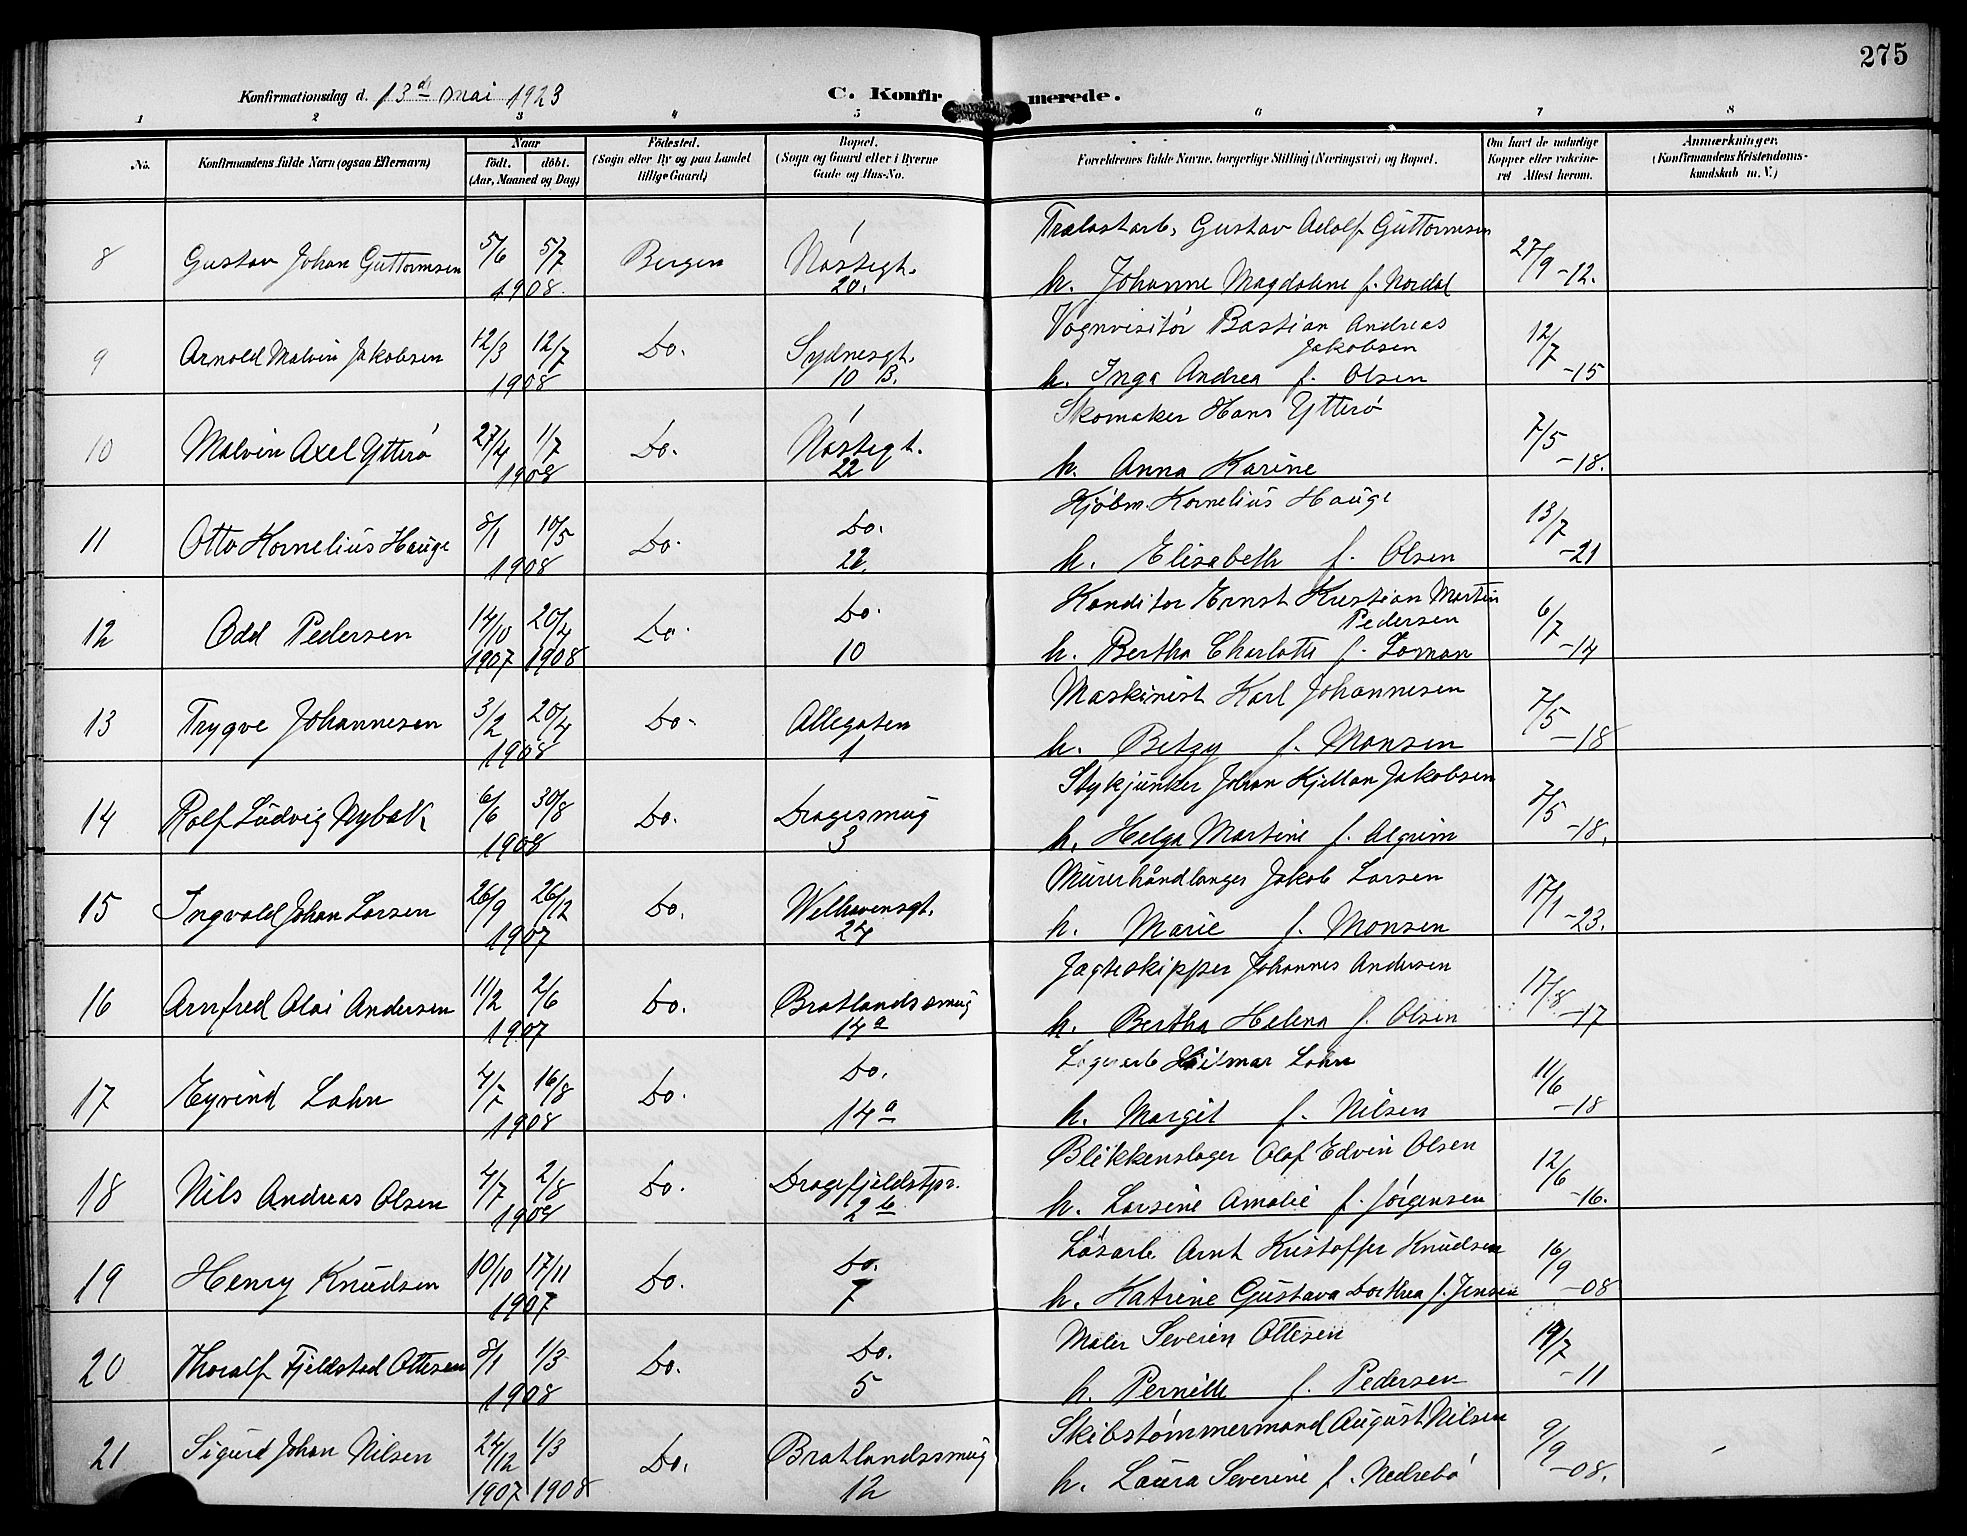 275
Konfirmationsdag d. 13de Mai 1923
C. Konfirmerede.
1 2 3 4 5 6 7 8
No.
Konfirmandens fulde Navn (ogsaa Efternavn)
Naar
født. døbt.
(Aar, Maaned og Dag)
Fødested.
(Sogn eller By og paa Landet
tillige Gaard)
Bopæl.
(Sogn og Gaard eller i Byerne
Gade og Hus-No.
Forældrenes fulde Navne, borgerlige Stilling (Næringsvei) og Bopæl.
Om havt de naturlige
Kopper eller vakcine-
ret Attest herom.
Anmærkninger.
(Konfirmandens Kristendoms-
kundskab m. V.)
8 Gustav Johan Guttormsen 5/6 5/7 1908. Bergen Nøstegt. 20.
Trælastarb. Gustav Adolf Guttormsen
h. Johanne Magdalene f. Nordal 27/9 -12.
9 Arnold Malvin Jakobsen 12/3 12/7 1908 Do. Sydnesgt. 10 B.
Vognvisitør Bastian Andreas
Jakobsen
h. Inga Andrea f. Olsen 12/7 -15
10 Malvin Axel Ytterø 27/4 1/7 1908 Do. Nøstegt. 22
Skomaker Hans Ytterø
h. Anna Karine 7/5 -18.
11 Otto Kornelius Hauge 8/1 10/5 1908 Do. Do. 22.
Kjøbm. Kornelius Hauge
h. Elisabeth f. Olsen 13/7 -21
12 Odd Pedersen 14/10 1907 20/4 1908 Do. Do. 10
Konditor Ernst Kristian Martin
Pedersen
h. Bertha Charlotte f. Loman 6/7 -14
13 Trygve Johannesen 3/2 20/4 1908 Do. Allegaten 1
Maskinist Karl Johannesen
h. Betzy f. Monsen 7/5 -18
14 Rolf Ludvig Nybak 6/6 30/8 1908 Do. Dragesmug 3
Stykjunker Johan Kjellan Jakobsen
h. Helga Martine f. Algrim 7/5 -18.
15 Ingvald Johan Larsen 26/9 26/12 1907 Do. Welhavensgt. 24
Murerhåndlanger Jakob Larsen
h. Marie f. Monsen 17/1 -23.
16 Arnfred Olai Andersen 11/2 2/6 1907 Do. Bratlandssmug 14a
Jagteskipper Johannes Andersen
h. Bertha Helena f. Olsen 17/8 -17
17 Eyvind Lohn 4/7 16/8 1908 Do. Do. 14a
Lagerarb Hilmar Lohn
h. Margit f. Nilsen 11/6 -18
18 Nils Andreas Olsen 4/7 2/8 1908 Do. Dragefjeldstpr. 2b
Blikkenslager Olof Edvin Olsen
h. Larsine Amalie f. Jørgensen 12/6 -16.
19 Henry Knudsen 10/10 17/11 1907 Do. Do. 7
Løsarb Arnt Kristoffer Knudsen
h. Katrine Gustava Dorthea f. Jensen 16/9 -08
20 Thoralf Fjeldstad Ottesen 8/1 1/3 1908 Do. Do. 5
Maler Severin Ottesen
h. Pernille f. Pedersen 19/7 -11
21 Sigurd Johan Nilsen 24/12 1907 1/3 1908 Do. Bratlandssmug 12
Skibstømmermand August Nilsen
h. Laura Severine f. Nedrebø 9/9 -08.